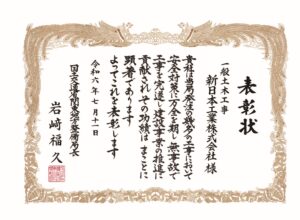 表彰状
一般土木工事
新日本工業株式会社 様
貴社は当局発注の頭書の工事において
安全対策に万全を期し無事故で
工事を完遂し建設事業の推進に
貢献されその功績はまことに
顕著であります
よってこれを表彰します
令和六年七月十一日
国土交通省関東地方整備局長
岩﨑福久